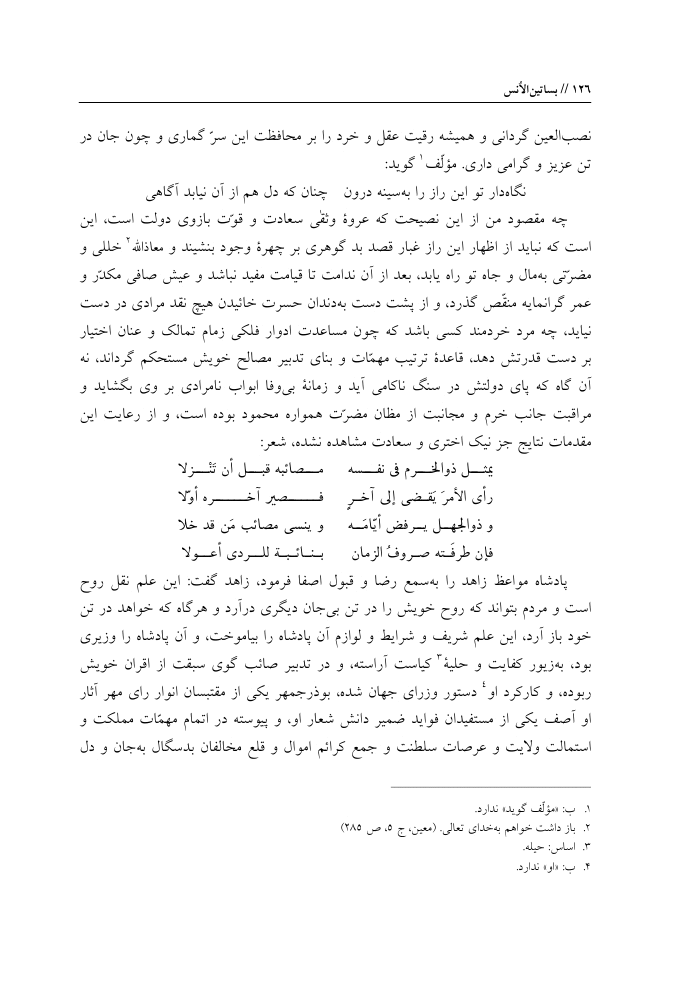 ١٢٦ // بساتین‌الأنس
نصب‌العین گردانی و همیشه رقیت عقل و خرد را بر محافظت این سرّ گماری و چون جان در
تن عزیز و گرامی داری. مؤلّف١ گوید:
نگاه‌دار تو این راز را به‌سینه درون چنان که دل هم از آن نیابد آگاهی
چه مقصود من از این نصیحت که عروۀ وثقٰی سعادت و قوّت بازوی دولت است، این
است که نباید از اظهار این راز غبار قصد بد گوهری بر چهرۀ وجود بنشیند و معاذالله٢ خللی و
مضرّتی به‌مال و جاه تو راه یابد، بعد از آن ندامت تا قیامت مفید نباشد و عیش صافی مکدّر و
عمر گرانمایه منغّص گذرد، و از پشت دست به‌دندان حسرت خائیدن هیچ نقد مرادی در دست
نیاید، چه مرد خردمند کسی باشد که چون مساعدت ادوار فلکی زمام تمالک و عنان اختیار
بر دست قدرتش دهد، قاعدۀ ترتیب مهمّات و بنای تدبیر مصالح خویش مستحکم گرداند، نه
آن گاه که پای دولتش در سنگ ناکامی آید و زمانۀ بی‌وفا ابواب نامرادی بر وی بگشاید و
مراقبت جانب خرم و مجانبت از مظان مضرّت همواره محمود بوده است، و از رعایت این
مقدمات نتایج جز نیک اختری و سعادت مشاهده نشده، شعر:
یمثـل ذوالخـرم فی نفـسه مـصائبه قبـل أن تَنْـزلا
رأی الأمرَ یَقـضی إلی آخـرٍ فـصیر آخـره أوّلا
و ذوالجهـل یـرفض أیّامَـه و ینسی مصائب مَن قد خلا
فإن طرقَـته صـروفُ الزمان بـنـائـبـة للـردی أعـولا
پادشاه مواعظ زاهد را به‌سمع رضا و قبول اصفا فرمود، زاهد گفت: این علم نقل روح
است و مردم بتواند که روح خویش را در تن بی‌جان دیگری درآرد و هرگاه که خواهد در تن
خود باز آرد، این علم شریف و شرایط و لوازم آن پادشاه را بیاموخت، و آن پادشاه را وزیری
بود، به‌زیور کفایت و حلیۀ٣ کیاست آراسته، و در تدبیر صائب گوی سبقت از اقران خویش
ربوده، و کارکرد او٤ دستور وزرای جهان شده، بوذرجمهر یکی از مقتبسان انوار رای مهر آثار
او آصف یکی از مستفیدان فواید ضمیر دانش شعار او، و پیوسته در اتمام مهمّات مملکت و
استمالت ولایت و عرصات سلطنت و جمع کرائم اموال و قلع مخالفان بدسگال به‌جان و دل
١. ب: «مؤلّف گوید» ندارد.
٢. باز داشت خواهم به‌خدای تعالی. (معین، ج ٥، ص ٢٨٥)
٣. اساس: حیله.
۴. ب: «او» ندارد.